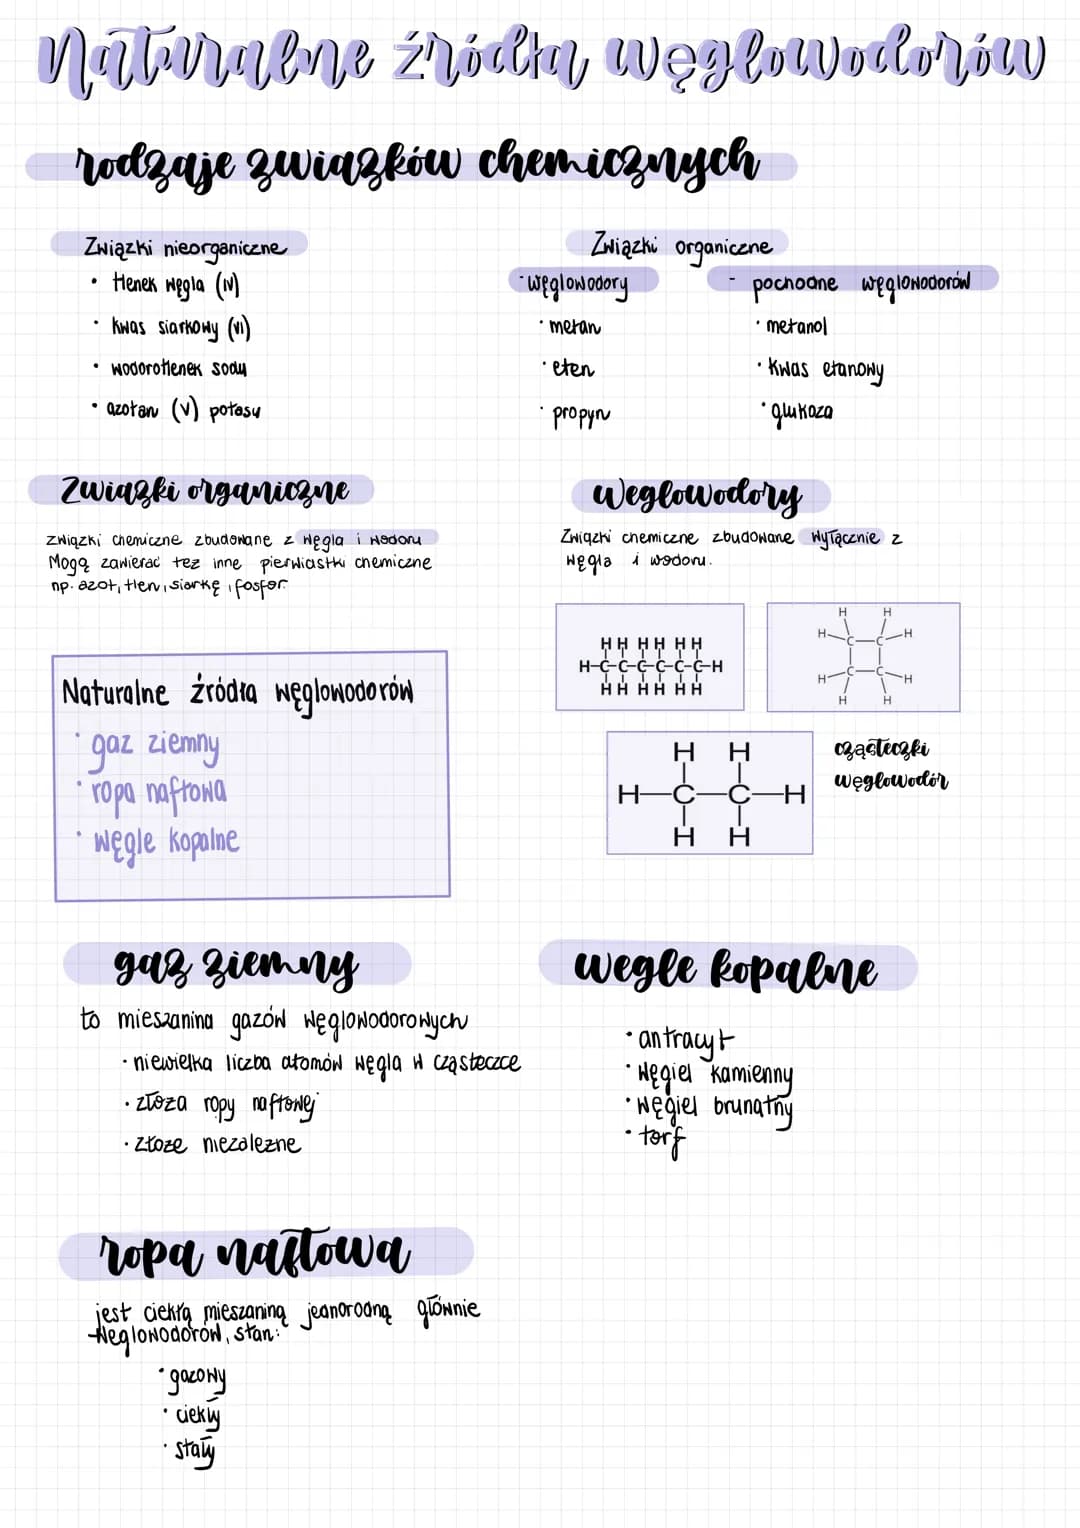 Naturalne źródła węglowodorów
rodzaje związków chemicznych
Związki nieorganiczne
• tlenek węgla (IV)
• kwas siarkowy (VI)
• wodorotlenek sodu
• azotan (V) potasu
Związki organiczne
- węglowodory
• metan
• eten
• propyn
- pochodne węglowodorów
• metanol
• kwas etanowy
• glukoza
Związki organiczne
związki chemiczne zbudowane z węgla i wodoru
Mogą zawierać też inne pierwiastki chemiczne
np. azot, tlen, siarkę, fosfor.
Węglowodory
Związki chemiczne zbudowane wyłącznie z
węgla i wodoru.
H H H H H H
H-C-C-C-C-C-C-H
H H H H H H
H H
H-C-C-H
H-C-C-H
H H
H H
H-C-C-H
H H
cząsteczki
węglowodór
Naturalne źródła węglowodorów
• gaz ziemny
• ropa naftowa
• węgle kopalne
gaz ziemny
to mieszanina gazów węglowodorowych
• niewielka liczba atomów węgla w cząsteczce
• złoża ropy naftowej
• złoże niezależne
węgle kopalne
• antracyt
• węgiel kamienny
• węgiel brunatny
• torf
ropa naftowa
jest ciekłą mieszaniną jednorodną głównie
węglowodorów, stan:
• gazowy
• ciekły
• stały